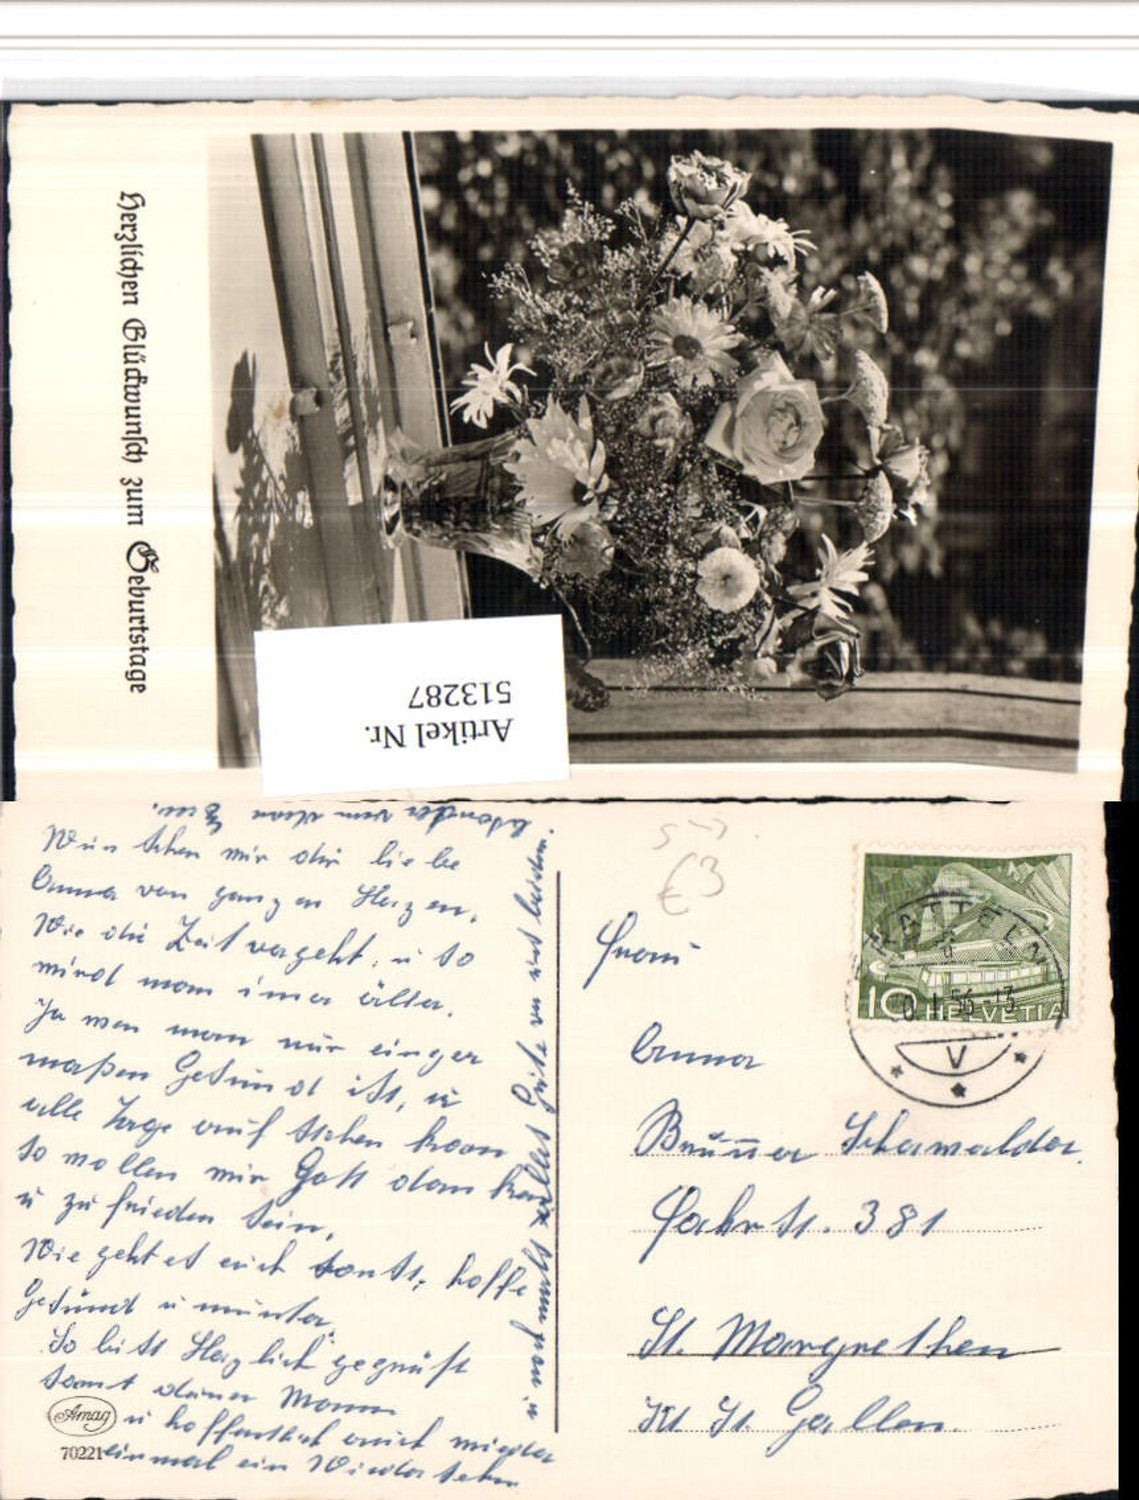 Herzlichen Glückwunsch zum Geburtstage
Artikel Nr.
513287
Wünschen wir dir liebe
Anna von ganzen Herzen.
Wie die Zeit vergeht, u so
wird man imer älter.
Ja wen man nur einger
maßen Gesund ist, u
alle Tage auf stehen kann
so wollen wir Gott dankbar
u zufrieden sein,
Wie geht es euch sonst, hoffe
Gesund u munter.
So bist Herzlich gegrüßt
samt deiner Mann
u hoffentlich auch wieder
einmal ein Wiedersehn
u nochmals alles Gute von uns beiden.
besonder vom
Amag
70221
€3
Frau
Anna
Brunner Scherwalder.
Bahnst. 381
St. Margrethen
Kt. St. Gallen.
10 HELVETIA
V